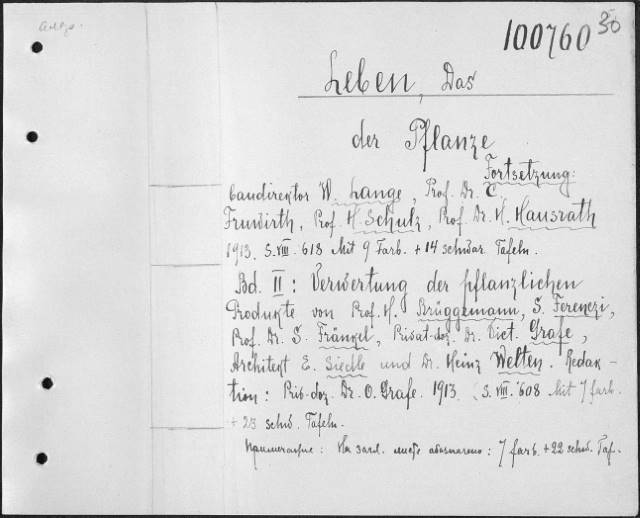 100760 30
Leben, Das
der Pflanze
Fortsetzung:
Gaudirektor W. Lange, Prof. Dr. C.
Fruwirth, Prof. H. Schulz, Prof. Dr. H. Hausrath
1913. S. VIII. 618 Mit 9 Farb. + 14 schwar. Tafeln.
Bd. II: Verwertung der pflanzlichen
Produkte von Prof. H. Brüggemann, S. Ferenczi,
Prof. Dr. S. Fränkel, Privat-doz. Dr. Vict. Grafe,
Architekt E. Siedle und Dr. Heinz Welten. Redak-
tion: Prib-doz. Dr. O. Grafe. 1913. S. VIII. 608 Mit 7 farb.
+ 23 schw. Tafeln.
Примечание: На загл. листе обозначено: 7 farb. + 22 schw. Taf.